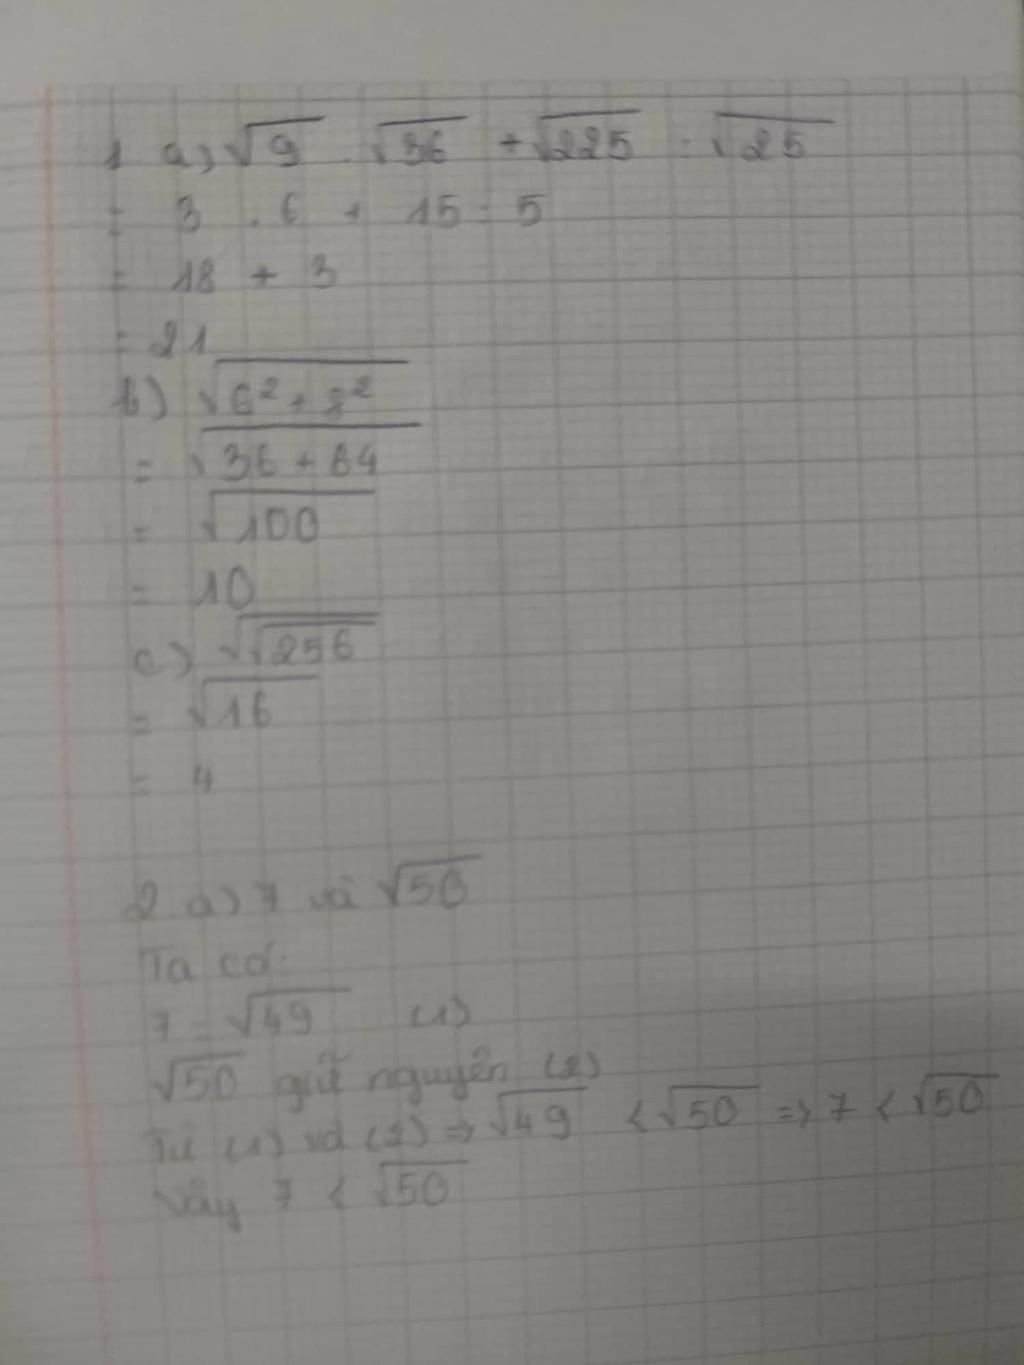 1 a) √9 . √36 + √225 : √25
= 3 . 6 + 15 : 5
= 18 + 3
= 21
b) √6² + 8²
= √36 + 64
= √100
= 10
c) √√256
= √16
= 4
2. a) 7 và √50
Ta có:
7 = √49 (1)
√50 giữ nguyên (2)
Từ (1) và (2) => √49 < √50 => 7 < √50
Vậy 7 < √50